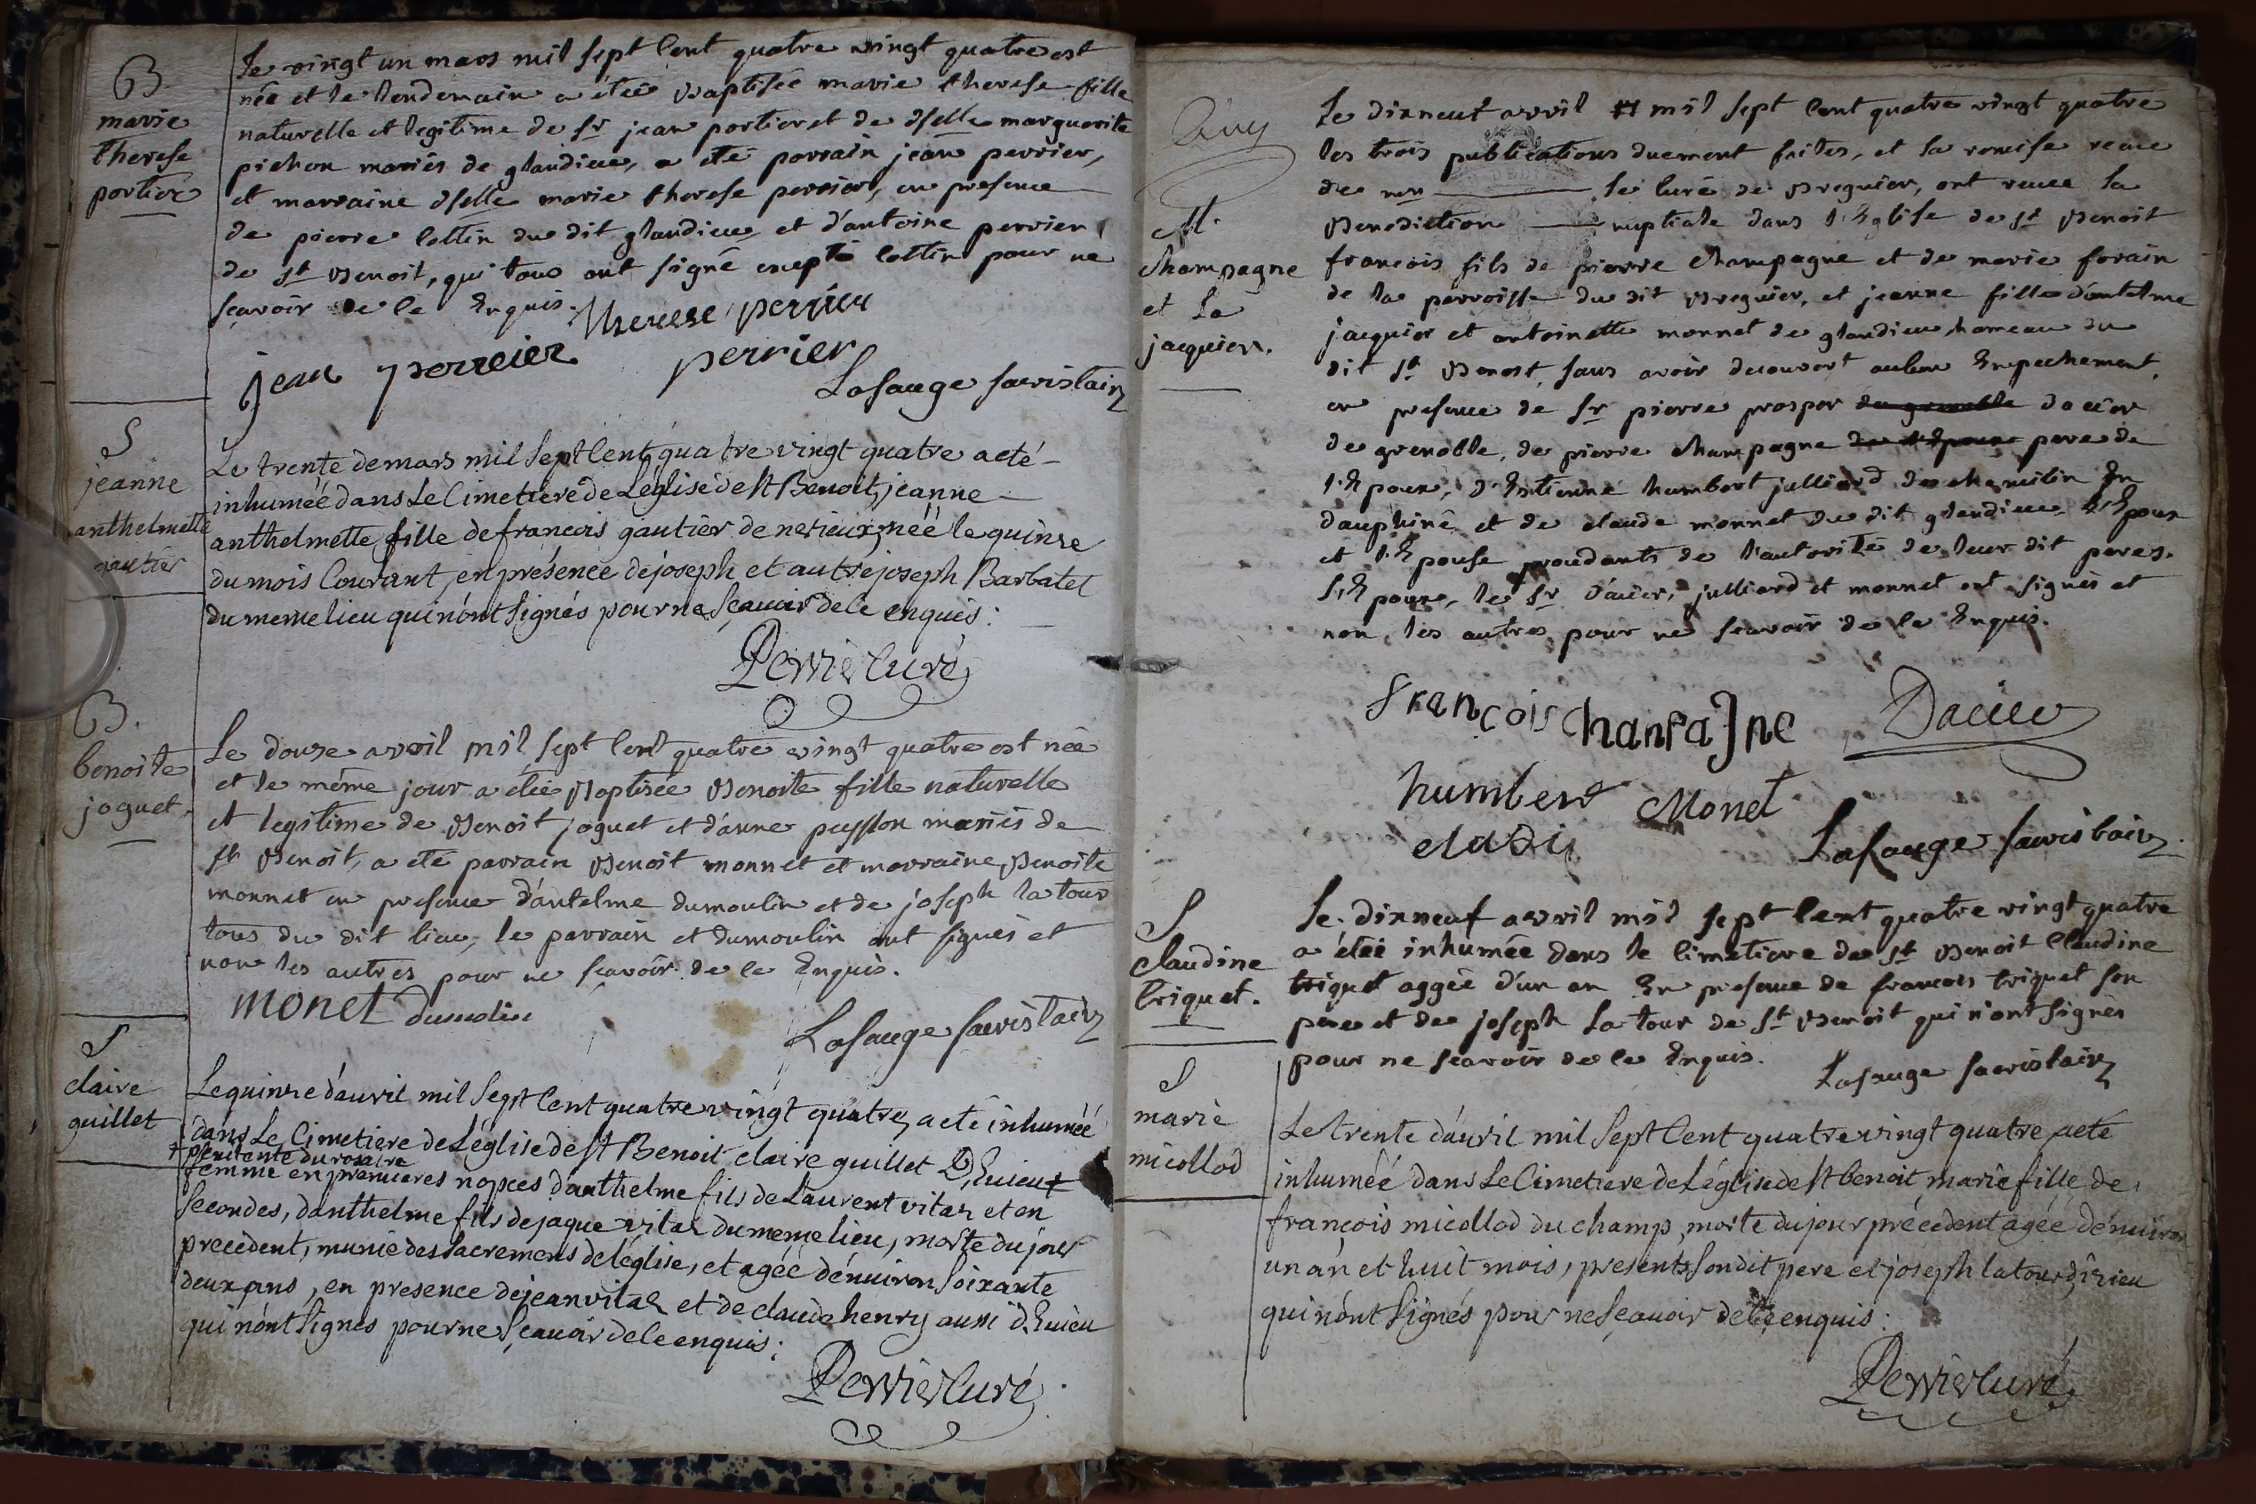 B.
marie
therese
portier
Le vingt un mars mil sept cent quatre vingt quatre est
née et le lendemain a étée Baptisée marie therese fille
naturelle et legitime de sr jean portier et de dselle marguerite
pichon mariés de glandieu, a eté parrain jean perrier,
et marraine dselle marie therese perrier, en presence
de pierre cottin du dit glandieu et d'antoine perrier
de st Benoit, qui tous ont signé excepté cottin pour ne
sçavoir de ce Enquis.
therese perrier
jean perreier perrier
Lafauge sacristain
S
jeanne
anthelmette
gautier
Le trente de mars mil sept cent quatre vingt quatre a eté
inhumée dans Le Cimetiere de Léglise de St Benoit, jeanne
anthelmette fille de francois gautier de nerieux, née le quinze
du mois Courant, en présence de joseph et autre joseph Barbatet
du meme lieu qui n'ont signés pour ne sçavoir de ce enquis :
Perrier curé
B.
benoite
joguet.
Le douze avril mil sept cent quatre vingt quatre est née
et le même jour a étée Baptisée Benoite fille naturelle
et legitime de Benoit joguet et d'anne peysson mariés de
st Benoit, a eté parrain Benoit monnet et marraine Benoite
monnet en presence d'antelme dumoulin et de joseph la tour
tous du dit lieu, le parrain et dumoulin ont signés et
non les autres pour ne sçavoir de ce Enquis.
monet dumolin
Lafauge sacristain
S
claire
guillet
Le quinze d'avril mil sept cent quatre vingt quatre, a eté inhumée
dans Le Cimetiere de Léglise de St Benoit claire guillet D'Euieu +
+ penitente du rosaire
femme en premieres nopces d'anthelme fils de Laurent vitaz et en
secondes, d'anthelme fils de jaque vitaz du meme lieu, morte du jour
precedent, munie des sacremens de l'église, et agée d'environ soixante
deux ans, en presence de jean vitaz et de claude henry aussi d'Euieu
qui n'ont signés pour ne sçavoir de ce enquis :
Perrier curé
M.
champagne
et La
jacquier.
Le dixneuf avril mil sept cent quatre vingt quatre
les trois publications duement faites, et la remise recue
de mr le curé de Bregnier, ont recue la
Benediction nuptiale dans l'Eglise de st Benoit
francois fils de pierre champagne et de marie forain
de la parroisse du dit Bregnier, et jeanne fille d'antelme
jacquier et antoinette monnet de glandieu hameau du
dit st Benoit, sans avoir decouvert aucun Empechement,
en presence de sr pierre prosper de grenoble dacier
de grenoble, de pierre champagne pere de
l'Epoux, d'Estienne humbert julliard de charuilin En
dauphiné et de claude monnet du dit glandieu, L'Epoux
et l'Epouse procedants de l'autorité de leur dit peres.
L'Epoux, le sr d'acier, julliard et monnet ont signés et
non les autres pour ne scavoir de ce Enquis.
françois chanpajne Dacier
humbert Monet
claude
Lafauge sacristain
S
claudine
triquet.
Le dixneuf avril mil sept cent quatre vingt quatre
a étée inhumée dans le cimetiere de st Benoit Claudine
triquet aggée d'un an En presence de francois triquet son
pere et de joseph La tour de st Benoit qui n'ont signés
pour ne scavoir de ce Enquis.
Lafauge sacristain
S
marie
micollod
Le trente d'avril mil sept cent quatre vingt quatre a eté
inhumée dans Le Cimetiere de Léglise de St benoit, marie fille de
françois micollod du champ, morte du jour précedent agée d'environ
un an et huit mois, presents son dit pere et joseph latour d'izieu
qui n'ont signés pour ne sçavoir de ce enquis :
Perrier curé